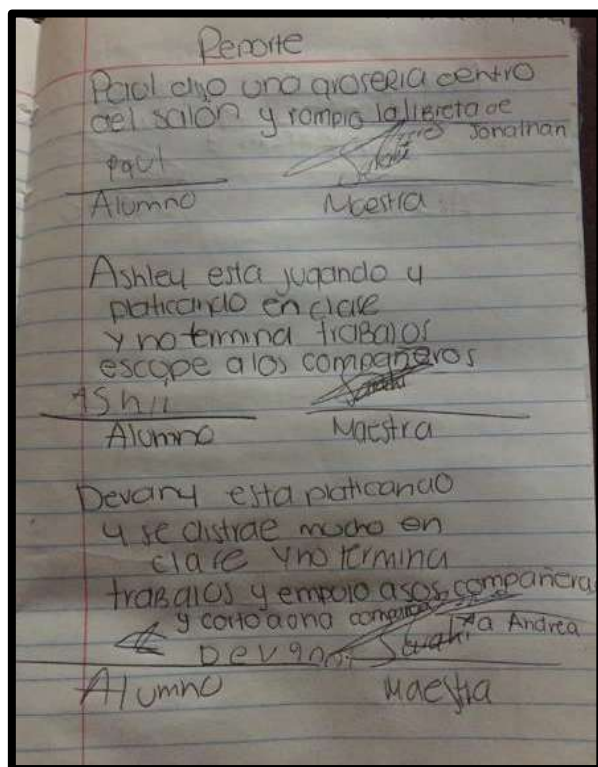 Reporte
Paul dijo una groseria dentro
del salón y rompio la libreta de
Jonathan
Paul
Alumno Maestra
Ashley esta jugando y
platicando en clase
y no termina traBajos
escope a los compañeros
AShli
Alumno Maestra
Devany esta platicando
y se distrae mucho en
clase y no termina
traBajos y empujo a sus compañeras
y corto a una compañera
Andrea
Devany
Alumno Maestra